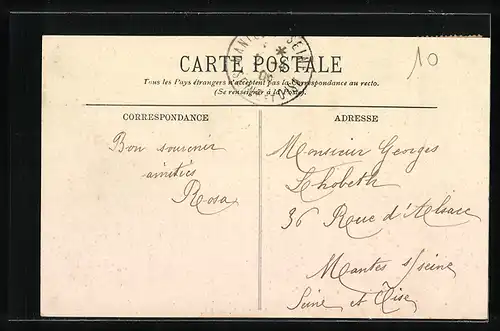 10
CARTE POSTALE
Tous les Pays étrangers n'acceptent pas la Correspondance au recto.
(Se renseigner à la Poste).
CORRESPONDANCE
Bon souvenir
amitiés
Rosa
ADRESSE
Monsieur Georges
Lhobeth
36 Rue d'Alsace
Mantes s/seine
Seine et Oise